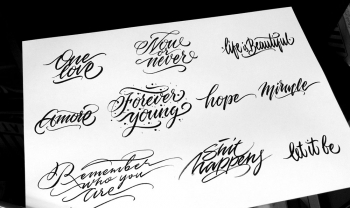 One
love
Now
or
never
life is Beautiful
Amore
Forever
young
hope
Miracle
Remember
who you
are
Shit
happens
let it be